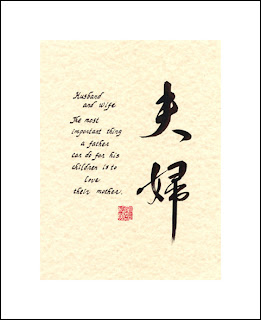 Husband
and Wife
The most
important thing
a father
can do for his
children is to
love
their mother.
夫
婦